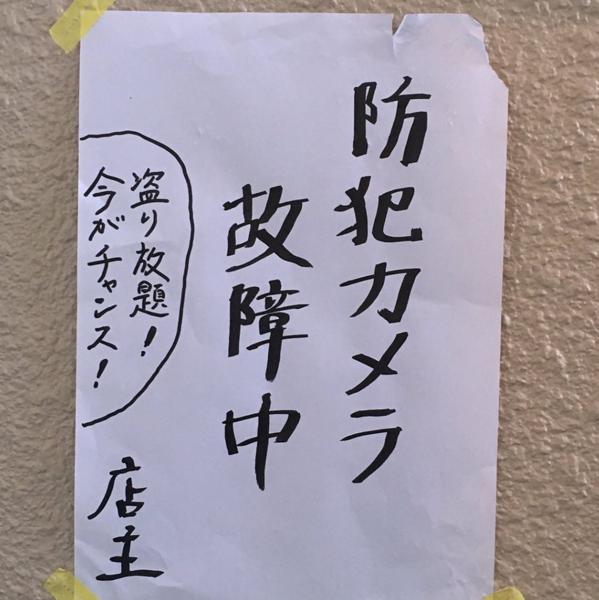 防犯カメラ
故障中
盗り放題！
今がチャンス！
店主